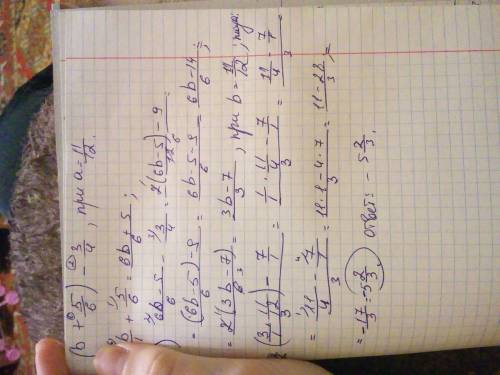 (b + 5/6) - 3/4, при a = 11/12.
b/1 + 5/6 = (6b + 5)/6;
(6b - 5)/6 - 3/4 = (2(6b - 5) - 9)/12 =
= ((6b - 5) - 9)/6 = (6b - 5 - 9)/6 = (6b - 14)/6;
= 2(3b - 7)/6 = (3b - 7)/3, при b = 11/12,
(3/1 · 11/12)/3 - 7/1 = (1/1 · 11/4 - 7/1)/3 = (11/4 - 7/1)/3 =
= (11/4 - 7/1)/3 = (11·1 - 4·7)/3 = (11 - 28)/3 =
= -17/3 = -5 2/3. Ответ: -5 2/3.